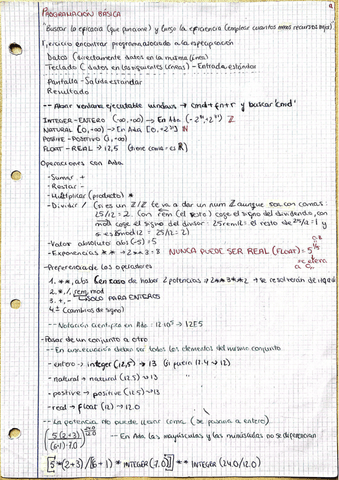 PROGRAMACIÓN BÁSICA
Buscar la eficacia (que funcione) y luego la eficiencia (emplear cuantos menos recursos mejor)
Ejercicio encontrar programa adecuado a la especificación
Datos (directamente datos en la misma línea)
Teclado (datos en las siguientes líneas) - Entrada estándar
Pantalla - Salida estándar
Resultado
-- Abrir ventana ejecutable windows → cmd+fn+r y buscar 'cmd'
INTEGER-ENTERO (-∞,+∞) → En Ada (-2³¹,+2³¹) Z
NATURAL [0,+∞) → En Ada [0,+2³¹) N
POSITIVE - POSITIVO (1,+∞)
FLOAT - REAL → 12,5 (tiene coma = es R)
Operaciones con Ada
- Sumar +
- Restar -
- Multiplicar (producto) *
- Dividir / (si es un Z/Z te va a dar un num Z aunque sea con comas:
25/12=2. Con rem (el resto) coge el signo del dividendo, con
mod coge el signo del divisor: 25 rem 12: el resto de 25/12 = 1 y
25/12=2)
- Valor absoluto abs(-5)=5
- Exponencias ** → 2**3=8 NUNCA PUEDE SER REAL (FLOAT)
- Preferencia de los operadores
1. **, abs En caso de haber 2 potencias → 2**3**2 → se resolverán de
2. *, /, rem, mod
3. +, - SOLO PARA ENTEROS
4. ± (cambios de signo)
-- Notación científica en Ada: 12·10⁵ → 12E5
- Pasar de un conjunto a otro
-- En una ecuación deben ser todos los elementos del mismo conjunto
- entero → integer (12,5) → 13 (si fuera 12.4 → 12)
- natural → natural (12.5) → 13
- positive → positive (12.5) → 13
- real → float (12) → 12.0
-- La potencia no puede llevar coma (se pasará a entero)
-- En Ada las mayúsculas y las minúsculas no se diferencian
[5*(2+3)/[(6+1)*INTEGER(7.0)]]**INTEGER(24.0/12.0)